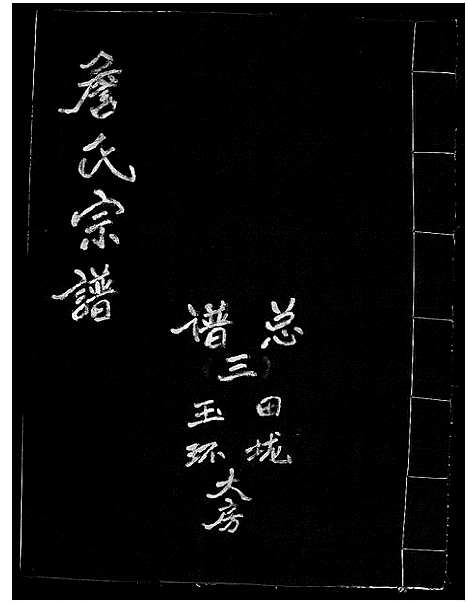 詹氏宗譜
总谱
三
田垅
玉环
大房